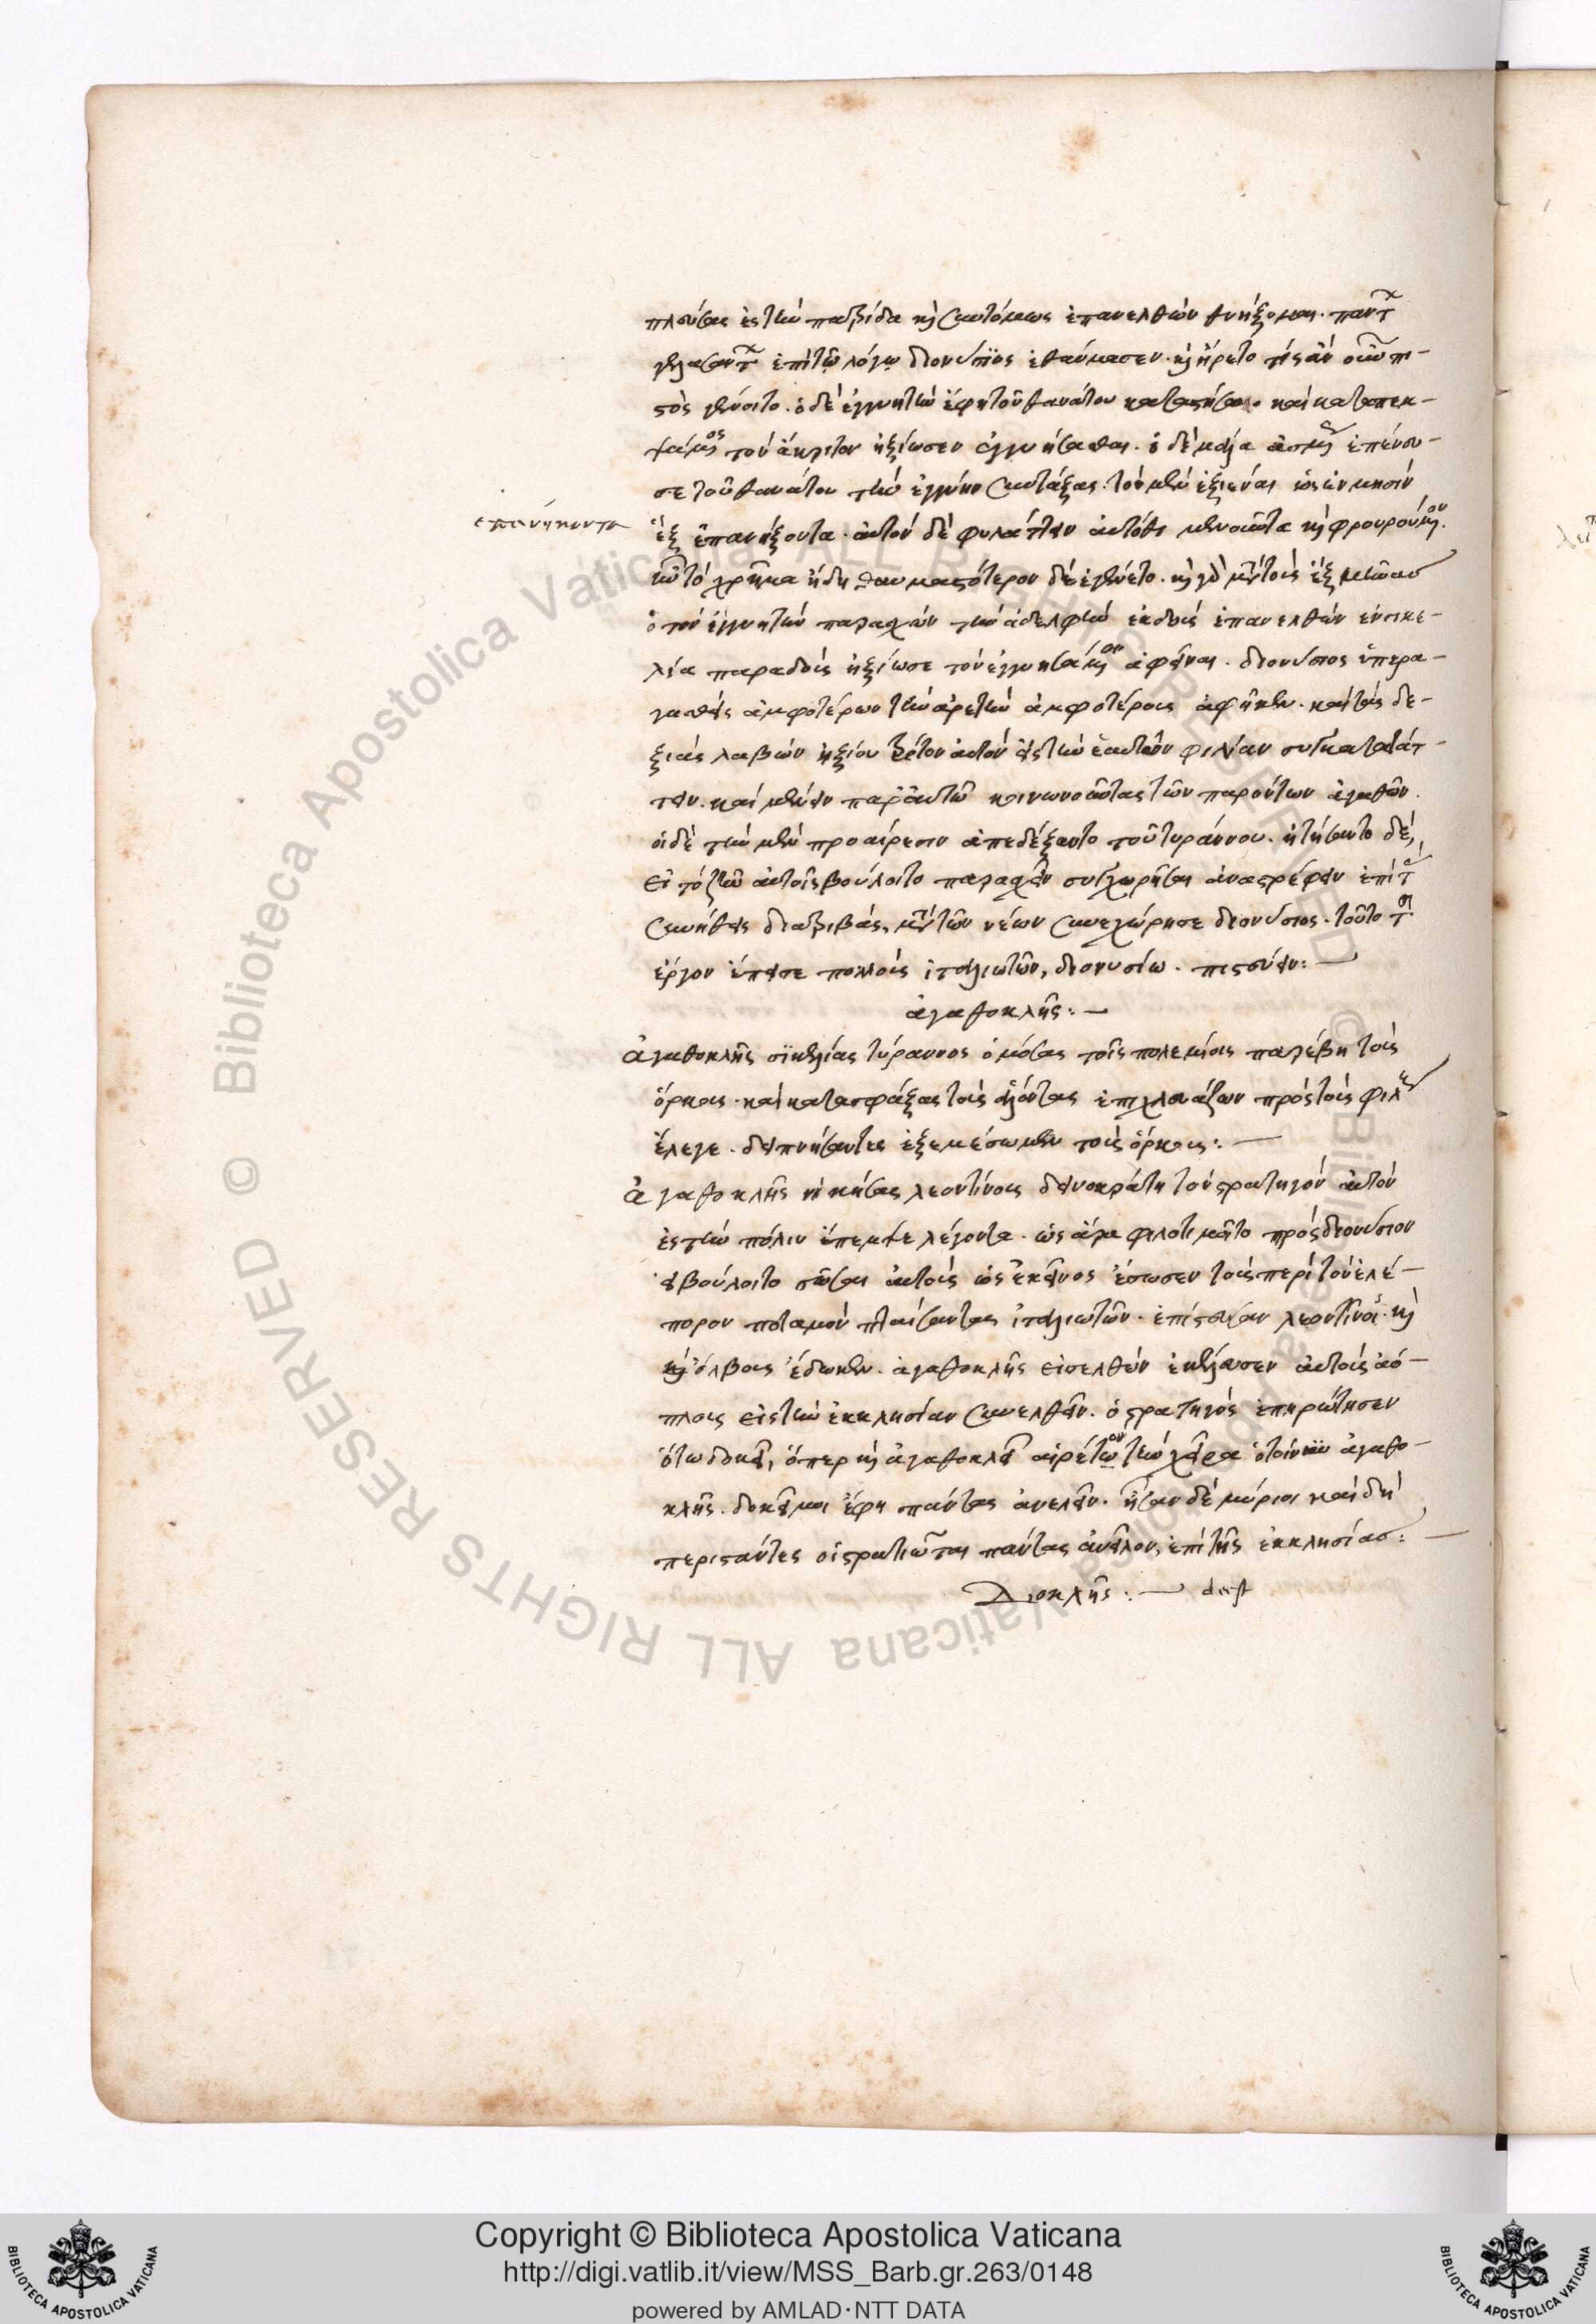 πλεύσας ἐς τὴν πατρίδα καὶ συντόμως ἐπανελθὼν τεθνήξομαι. πάντων
γελασάντων ἐπὶ τῷ λόγῳ διονύσιος ἐθαύμασεν. καὶ ἤρετο τίς ἂν οὖν πι-
στὸς γένοιτο. ὁ δὲ ἐγγυητὴν ἔφη τοῦ θανάτου καταστήσειν καὶ καταπεμ-
ψάμενος τὸν ἄκριτον ἠξίωσεν ἐγγυήσασθαι. ὁ δὲ μάλα ἄσμενος ἐπένευ-
σε τοῦ θανάτου τὴν ἐγγύην συντάξας. τὸν μὲν ἐξιέναι ὡς ἐν μησὶν
ἐπανήκοντα
ἓξ ἐπανήξοντα. αὐτὸν δὲ φυλάττειν αὐτόθι μένοντα καὶ φρουρούμενον.
καὶ τὸ χρῆμα ἤδη θαυμαστότερον δὲ ἐγένετο. καὶ γὰρ μετὰ τοὺς ἓξ μῆνας
ὁ τὸν ἐγγυητὴν παρασχὼν τὴν ἀδελφὴν ἐκδοὺς ἐπανελθὼν ἐν σικε-
λίᾳ παραδοὺς ἠξίωσε τὸν ἐγγυησάμενον ἀφεῖναι. διονύσιος ὑπερα-
γασθεὶς ἀμφοτέρων τὴν ἀρετὴν ἀμφοτέρους ἀφῆκεν. καὶ τὰς δε-
ξιὰς λαβὼν ἠξίου τρίτον αὐτὸν εἰς τὴν ἑαυτῶν φιλίαν συγκατατάτ-
τειν. καὶ μένειν παρ' αὐτῷ κοινωνοῦντας τῶν παρόντων ἀγαθῶν.
οἱ δὲ τὴν μὲν προαίρεσιν ἀπεδέξαντο τοῦ τυράννου. ᾐτήσαντο δέ,
εἰ τὸ ζῆν αὐτοῖς βούλοιτο παρασχεῖν συγχωρῆσαι ἀναστρέφειν ἐπὶ τὰς
συνήθεις διατριβάς, μετὰ τῶν νέων συνεχώρησε διονύσιος. τοῦτο τὸ
ἔργον ἔπεισε πολλοὺς ἰταλιωτῶν, διονυσίῳ. πιστεύειν:—
ἀγαθοκλῆς:—
Ἀγαθοκλῆς σικελίας τύραννος ὀμόσας τοῖς πολεμίοις παρέβη τοὺς
ὅρκους. καὶ κατασφάξας τοὺς ἁλόντας ἐπιχλευάζων πρὸς τοὺς φίλους
ἔλεγε. δειπνήσαντες ἐξεμέσωμεν τοὺς ὅρκους:—
Ἀγαθοκλῆς νικήσας λεοντίνους δεινοκράτη τὸν στρατηγὸν αὐτὸν
ἐς τὴν πόλιν ἔπεμψε λέγοντα. ὡς ἄρα φιλοτιμεῖτο πρὸς διονύσιον
εἰ βούλοιτο σῶσαι αὐτοὺς ὡς ἐκεῖνος ἔσωσεν τοὺς περὶ τὸν ἑλέ-
πορον ποταμὸν πταίσαντας ἰταλιωτῶν. ἐπίστευσαν λεοντῖνοι. καὶ
καὶ ὅλβους ἔδωκεν. ἀγαθοκλῆς εἰσελθὼν ἐκέλευσεν αὐτοὺς ἀό-
πλους εἰς τὴν ἐκκλησίαν συνελθεῖν. ὁ στρατηγὸς ἐπηρώτησεν
ὅτῳ δοκεῖ, ὅπερ καὶ ἀγαθοκλεῖ αἱρέτω τὴν χεῖρα ἀγαθο-
κλῆς. δοκεῖ μοι ἔφη πάντας ἀνελεῖν. ἦσαν δὲ μύριοι καὶ δὴ
περιστάντες οἱ στρατιῶται πάντας ἀνεῖλον, ἐπὶ τῆς ἐκκλησίας:—
Διοκλῆς:— deest
Copyright © Biblioteca Apostolica Vaticana
http://digi.vatlib.it/view/MSS_Barb.gr.263/0148
powered by AMLAD·NTT DATA
© Biblioteca Apostolica Vaticana ALL RIGHTS RESERVED
© Biblioteca Apostolica Vaticana ALL RIGHTS RESERVED
BIBLIOTECA APOSTOLICA VATICANA
BIBLIOTECA APOSTOLICA VATICANA